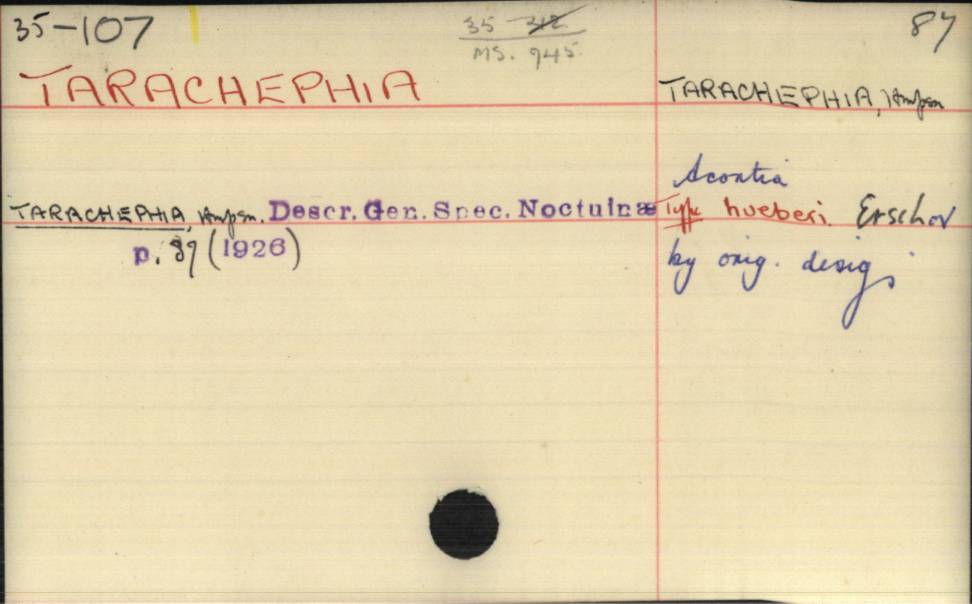 35-107
35 312
MS. 945.
87
TARACHEPHIA
TARACHEPHIA, Hmpsn
Acontia
TARACHEPHIA, Hmpsn. Descr. Gen. Spec. Noctuinæ
Type hueberi. Erschov
p. 87 (1926)
by orig. desig